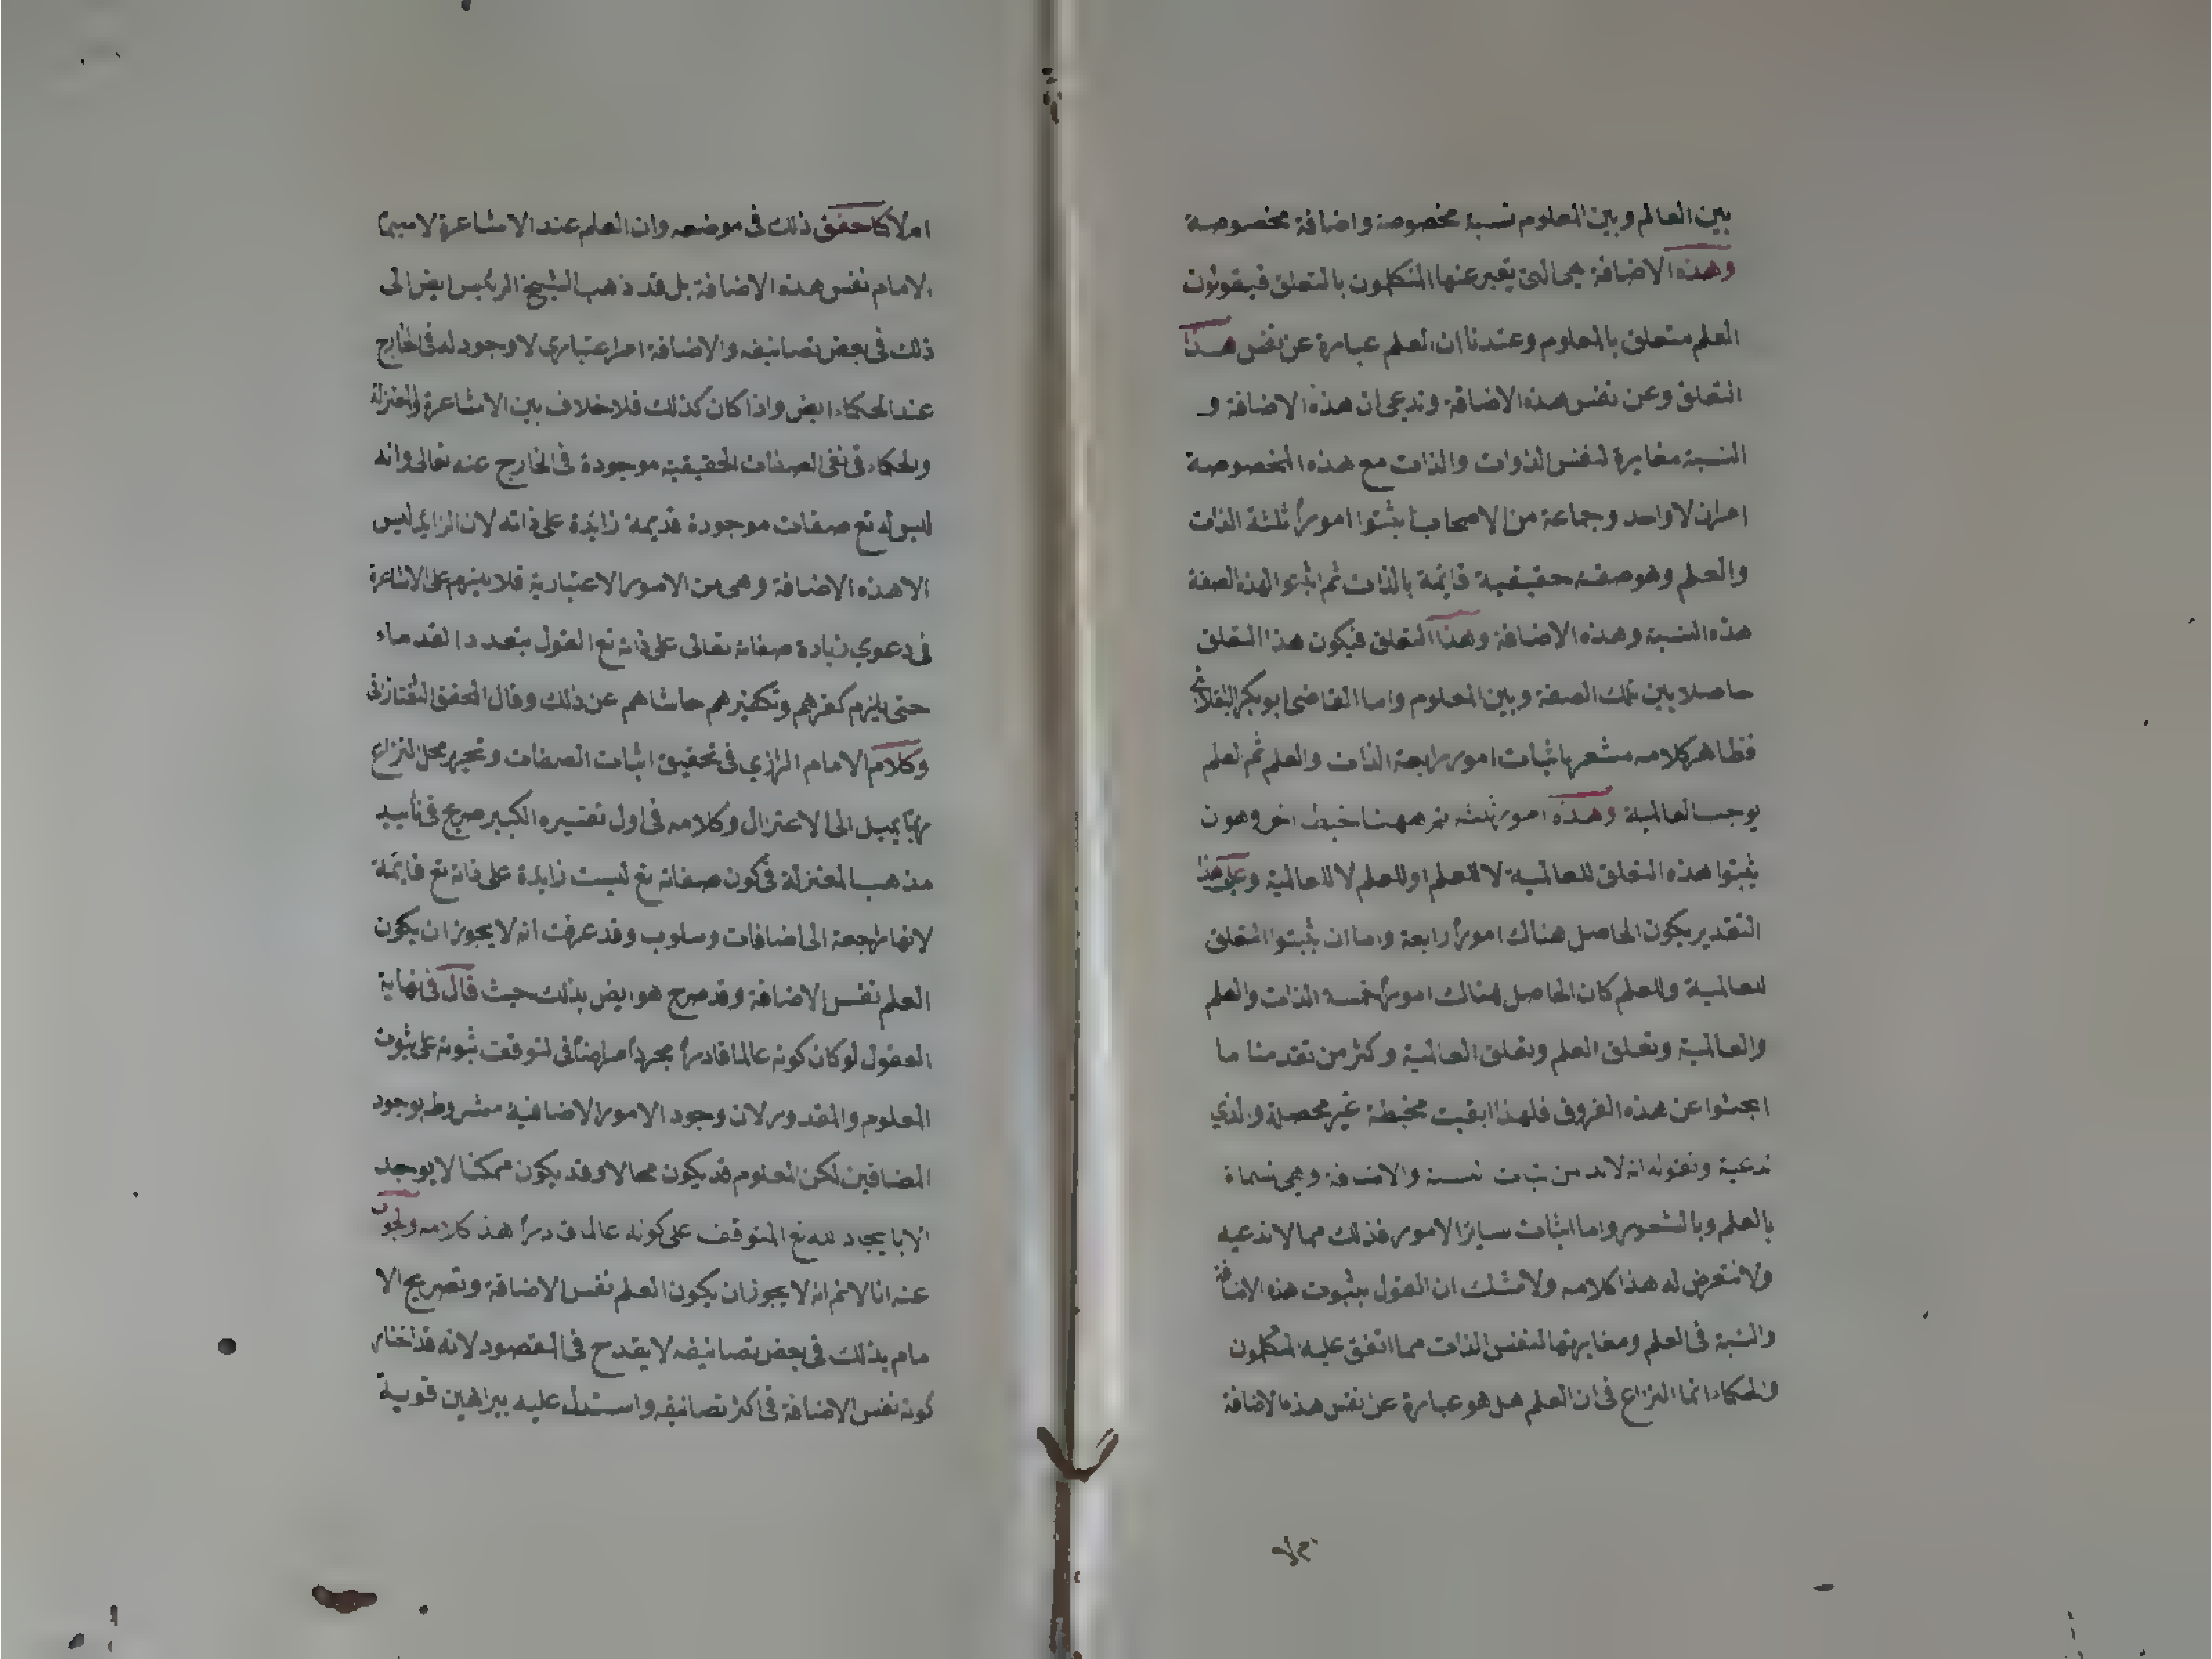 بين العالم وبين المعلوم نسبة مخصوصة واضافة مخصوصة
وهذه الاضافة هى التى يعبر عنها المتكلمون بالتعلق فيقولون
العلم متعلق بالمعلوم وعندنا ان العلم عبارة عن نفس هذا
التعلق وعن نفس هذه الاضافة وندعى ان هذه الاضافة و
النسبة مغايرة لنفس الذوات والذات مع هذه المخصوصة
امران لا واحد وجماعة من الاصحاب يثبتوا امورا ثلثة الذات
والعلم وهو صفة حقيقية قايمة بالذات ثم اثبتوا لهذه الصفة
هذه النسبة وهذه الاضافة وهذا التعلق فيكون هذا التعلق
حاصلا بين تلك الصفة وبين المعلوم واما القاضى ابو بكر البقلانى
فظاهر كلامه مشعر باثبات امور رابعة الذات والعلم ثم العلم
يوجب العالمية وهذه امور ثلثه ثم ههنا خبط اخر وهو ن
يثبتوا هذه التعلق للعالمية لا للعلم او للعلم لا للعالمية وعلى هذا
التقدير يكون الحاصل هناك امورا رابعة واما ان يثبتوا التعلق
للعالمية وللعلم كان الحاصل هناك امورا خمسة الذات والعلم
والعالمية وتعلق العلم وتعلق العالمية وكثر من تقدمنا ما
ابحثوا عن هذه الفروق فلهذا ابقيت مخبطة غير محصلة والذي
ندعية ونقوله انه لابد من ثبات نسبة والاضافة وهى مسماة
بالعلم وبالشعور واما اثبات سايرا الامور فذلك مما لا ندعيه
ولا نتعرض له هذا كلامه ولا مشك ان القول بثبوت هذه الاضافة
والنسبة فى العلم ومغايرتها لنفس الذات مما اتفق عليه المتكلمون
والحكماء انما النزاع فى ان العلم هل هو عبارة عن نفس هذه الاضافة
ام لا كما حقق ذلك فى موضعه وان العلم عند الاشاعرة لا سيما
الامام نفس هذه الاضافة بل قد ذهب الشيخ الرئيس ايض الى
ذلك فى بعض تصانيفه والاضافة امر اعتبارى لا وجود له فى الخارج
عند الحكماء ايض واذا كان كذلك فلا خلاف بين الاشاعرة والمعتزلة
والحكماء فى نفى الصفات الحقيقية موجودة فى الخارج عنه تعالى وانه
ليس له تع صفات موجودة قديمة زايدة على ذاته لان الزايد ليس
الا هذه الاضافة وهى من الامور الاعتبارية فلا يلزم على الاشاعرة
فى دعوي زيادة صفاته تعالى على ذاته تع القول بتعدد القدماء
حتى يلزم كفرهم وتكفيرهم حاشاهم عن ذلك وقال المحقق التفتازانى
وكلام الامام الرازي فى تحقيق اثبات الصفات وتحرير محل النزاع
ربما يميل الى الاعتزال وكلامه فى اول تفسيره الكبير صريح فى تأييد
مذهب المعتزلة فى كون صفاته تع ليست زايدة على ذاته تع قايمة
لانها راجعة الى اضافات وسلوب وقد عرفت انه لا يجوز ان يكون
العلم نفس الاضافة وقد صرح هو ايض بذلك حيث قال فى نهاية
العقول لو كان كونه عالما قادرا مجرد امر اضافى لتوقفت ثبوته على ثبوت
المعلوم والمقدور لان وجود الامور الاضافية مشروط بوجود
المضافين لكن المعلوم قد يكون محالا وقد يكون ممكنا لا يوجد
الا بايجاد لله تع المتوقف على كونه عالما قادرا هذا كلامه والجواب
عنه انا لانم انه لا يجوز ان يكون العلم نفس الاضافة وتصريح الا
مام بذلك فى بعض تصانيفه لا يقدح فى المقصود لانه قد اختار
كونه نفس الاضافة فى اكثر تصانيفه واستدل عليه ببراهين قوية